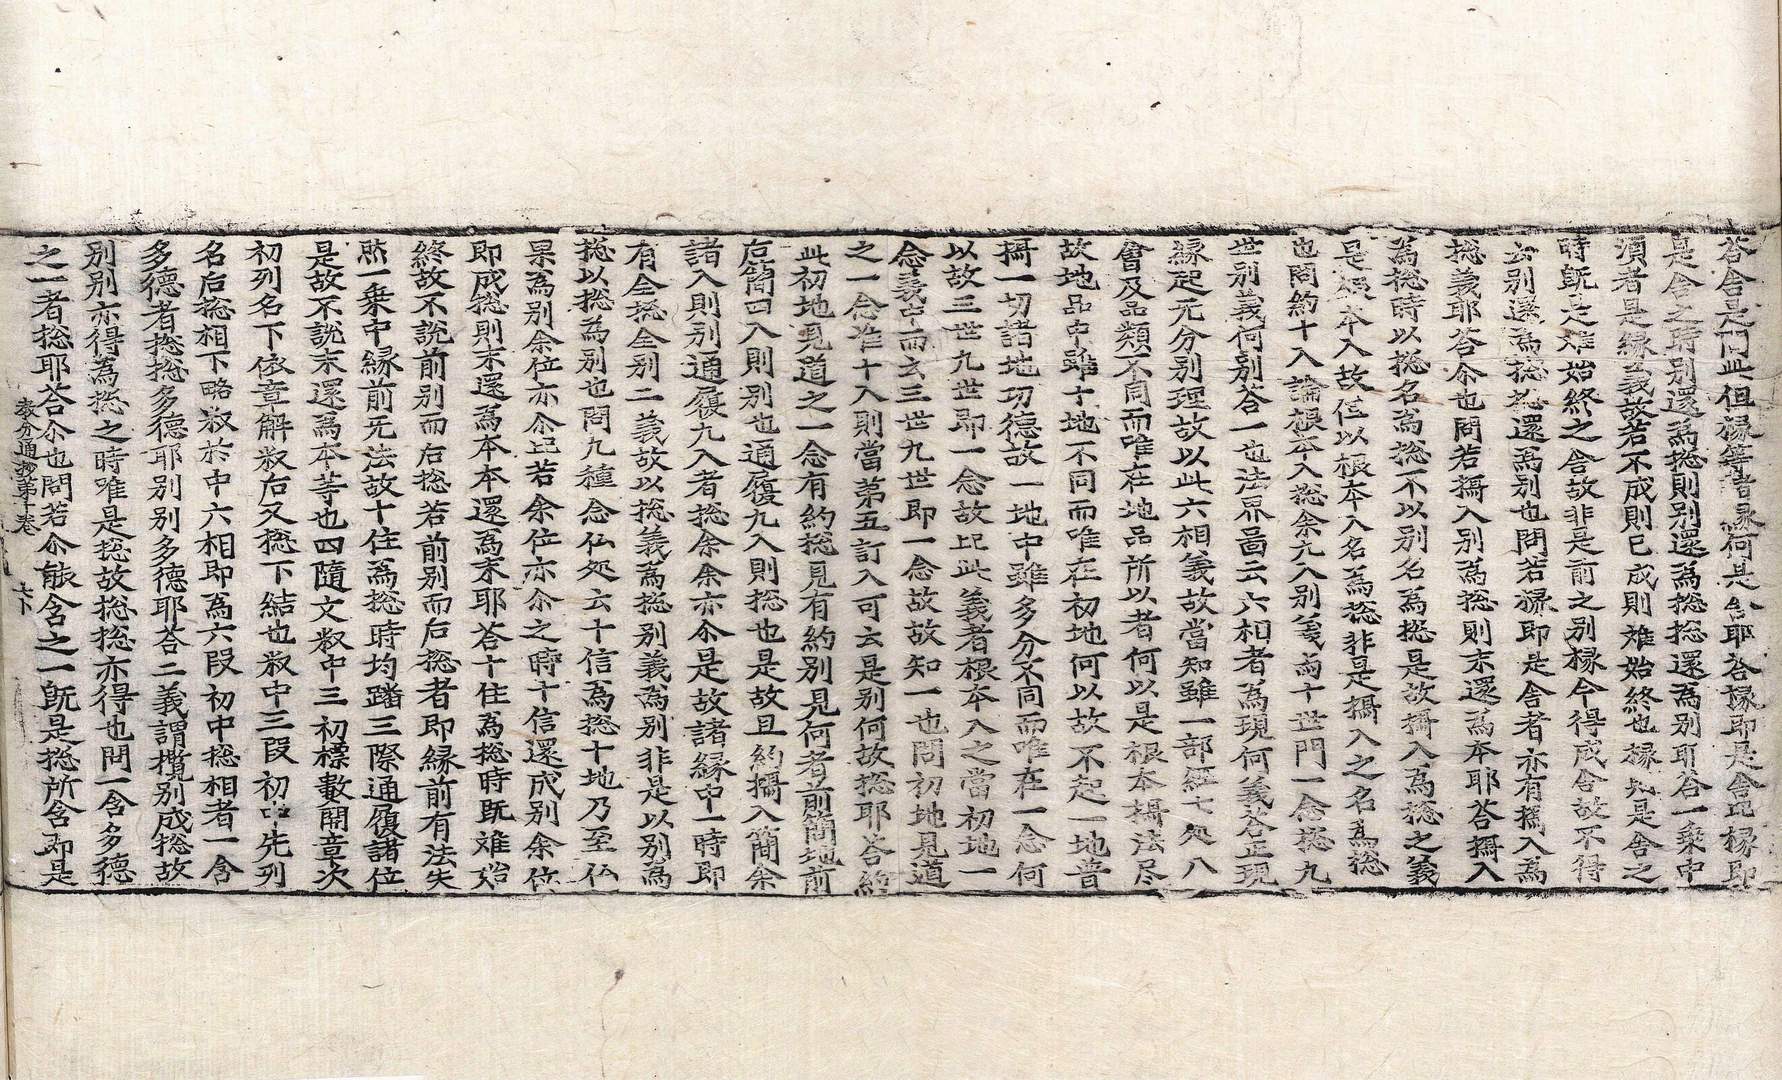 答舍是門此但椽等者緣何是舍耶答椽即是舍此椽即
是舍之時別還爲捴則別還爲捴捴還爲別耶答一乗中
湏者是緣義故若不成則已成則难始終也椽此是舍之
時旣是难始終之舍故非是前之別椽今得成舍故不得
云別還爲捴捴還爲別也問若椽即是舍者亦有攝入爲
捴義耶答尒也問若攝入別爲捴則末還爲本耶答攝入
爲捴時以捴名爲捴不以別名爲捴是故攝入爲捴之義
是根本入故但以根本入名爲捴非是攝入之名爲捴
也問約十入論根本入捴余九入別義為十世門一念捴九
世別義何別答一也法界啚云六相者爲現何義答正現
縁起无分別理故以此六相義故當知雖一部経七処八
會及品類不同而唯在地品所以者何以是根本攝法尽
故地品中雖十地不同而唯在初地何以故不起一地普
攝一切諸地功德故一地中雖多分不同而唯在一念何
以故三世九世即一念故㠯此義者根本入之當初地一
念義中而云三世九世即一念故故知一也問初地見道
之一念准十入則當第五訂入可云是別何故捴耶答約
此初地見道之一念有約捴見有約別見何者前簡地前
后簡四入則別也通復九入則捴也是故且約攝入簡余
諸入則別通復九入者捴余余亦尒是故諸緣中一時即
有全捴全別二義故以捴義爲捴別義爲別非是以別爲
捴以捴爲別也問九種念仏処云十信爲捴十地乃至仏
果爲別余位亦尒㠯若余位亦尒之時十信還成別余位
即成捴則末還爲本本還爲末耶答十住爲捴時旣难始
終故不說前別而后捴若前別而后捴者即緣前有法失
㸃一乗中緣前无法故十住爲捴時均踏三際通履諸位
是故不說末還爲本等也四隨文㪚中三初標數開章次
初列名下依章解㪚后又捴下結也㪚中三段初中先列
名后捴相下略㪚於中六相即爲六段初中捴相者一含
多德者捴捴多德耶別別多德耶答二義謂攬別成捴故
別別亦得爲捴之時唯是捴故捴捴亦得也問一含多德
之一者捴耶答尒也問若尒能含之一旣是捴所含即是
教分通抄第十卷 七下